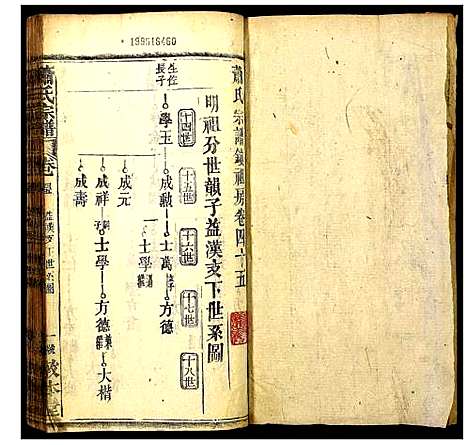 蕭氏宗譜鎮祖房卷四十五
明祖分世韻子益漢支下世系圖
十四世
十五世
十六世
十七世
十八世
199516460
生佐長子
學玉
成勳
士萬
方德
士學
成元
成祥
士學
方德
大楷
成壽
蕭氏宗譜
卷
益漢支下世系圖
一
敦本堂